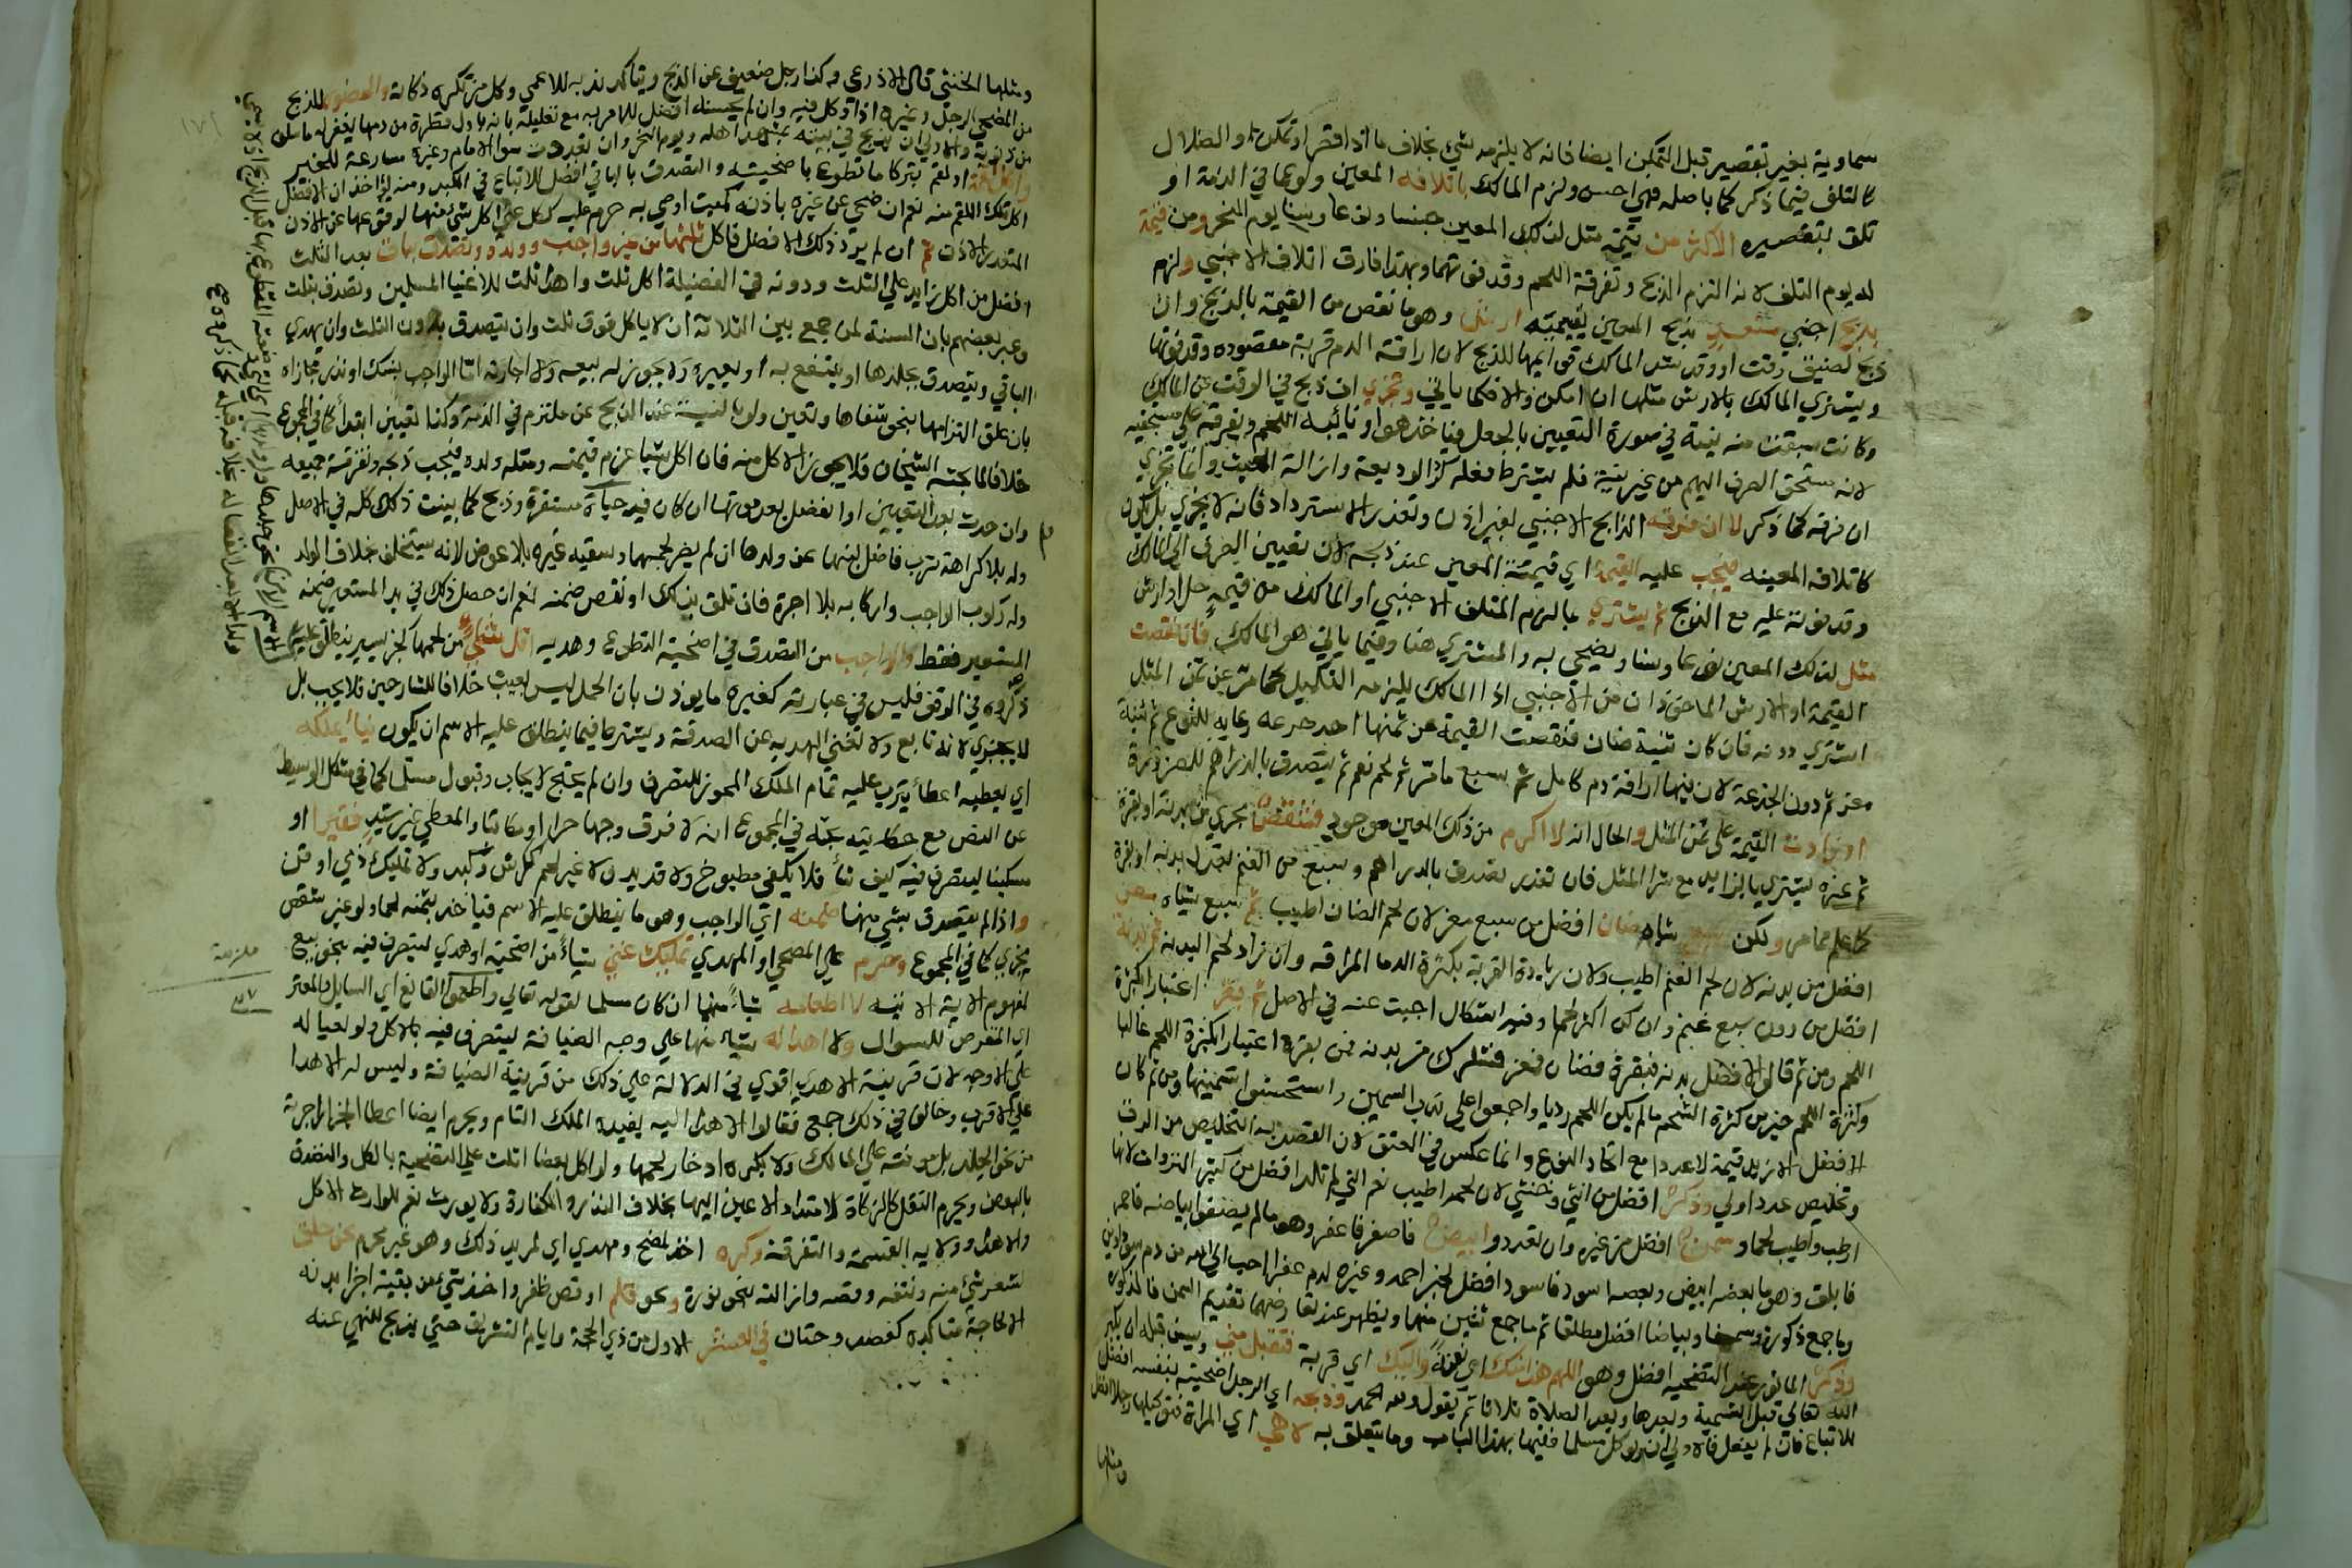 سماوية بغير تقصير قبل التمكن ايضا فانه لا يلزمه شي بخلاف ما اذا قصر او تمكن او الضلال
كالتلف فيما ذكر كما باصله فهي احسن ولزم المالك باتلافه المعين ولو عما في الذمة او
تلف بتقصيره الاكثر من قيمة مثل لذلك المعين جنسا ونوعا وسنا يوم النحر ومن قيمة
له يوم التلف لانه التزم الذبح وتفرقة اللحم وقد فوتهما وبهذا فارق اتلاف الاجنبي ولزم
بذبح اجنبي متعد بذبح المعين بقيمته ارش وهو ما نقص من القيمة بالذبح وان
ذبح لضيق وقت او وقد نشد المالك قوايمها للذبح لان اراقة الدم قربة مقصودة وقد فوتها
ويشتري المالك بالارش مثلها ان امكن والا فكما ياتي وتجزي ان ذبح في الوقت عن المالك
وكانت سبقت منه نية في صورة التعيين بالجعل فياخذ هو او نائبه اللحم ويفرقه على مستحقيه
لانه مستحق الصرف اليهم من غير نية فلم يشترط فعله كرد الوديعة وازالة الخبث وانما تجزي
ان فرقه كما ذكر لا ان فرقه الذابح الاجنبي بغير اذن وتعذر الاسترداد فانه لا يجزي بل يكون
كاتلافه المعينه فيجب عليه القيمة اي قيمة المعين عند ذبحه لان تعيين الصرف الى المالك
وقد فوته عليه مع الذبح ثم يشتري بما لزم المتلف الاجنبي او المالك من قيمة حل او ارش
مثل لذلك المعين نوعا وسنا ويضحي به والمشتري هنا وفيما ياتي هو المالك فان نقصت
القيمة او الارش الماخوذان من الاجنبي اذ المالك يلزمه التكميل كما مر عن ثمن المثل
اشتري دونه فان كان ثنية ضان فنقصت القيمة عن ثمنها اخذ جذعه رعاية للنوع ثم ثنية
معز ثم دون الجذعة لان فيها اراقة دم كامل ثم سبع ما مر ثم لحم نعم ثم يتصدق بالدراهم للضرورة
او زادت القيمة على ثمن المثل والحال انه لا اكرم من ذلك المعين موجود فشقص يجزي من بدنة او بقرة
ثم غيره يشتري بالزايد مع شرا المثل فان تعذر تصدق بالدراهم وسبع من الغنم تعدل بدنة او بقرة
كما علم مما مر ولكن سبع شياه ضان افضل من سبع معز لان لحم الضان اطيب ثم سبع شياه معز
افضل من بدنه لان لحم الغنم اطيب ولان زيادة القربة بكثرة الدما المراقه وان زاد لحم البدنه ثم بدنة
افضل من دون سبع غنم وان كن اكثر لحما وفيه اشكال اجبت عنه في الاصل ثم بقر اعتبارا بكثرة
اللحم ومن ثم قالوا الافضل بدنه فبقرة فضان فمعز فشرك من بدنه فمن بقرة اعتبارا بكثرة اللحم غالبا
وكثرة اللحم خير من كثرة الشحم ما لم يكن اللحم رديا واجمعوا على ندب السمين واستحسنوا تسمينها ومن ثم كان
الافضل الازيد قيمة لا عددا مع اتحاد النوع وانما عكس في العتق لان القصد به التخليص من الرق
وتخليص عدد اولي وذكر افضل من انثي وخنثي لان لحمه اطيب نعم التي لم تلد افضل من كثير النزوات لانها
ارطب واطيب لحما وسمين افضل من غيره وان تعدد وابيض فاصفر فاعفر وهو ما لم يصف بياضه فاحمر
فابلق وهو ما بعضه ابيض وبعضه اسود فاسود افضل لخبر احمد وغيره لدم عفرا احب الى الله من دم سوداوين
وما جمع ذكورة وسمنا وبياضا افضل مطلقا ثم ما جمع ثنتين منها ويظهر عند تعارضهما تقديم السمن فالذكورة
وذكر الماثور عند التضحية افضل وهو اللهم هذا منك اي نعمة واليك اي قربة فتقبل مني ويسن قبله ان يكبر
الله تعالي قبل التسمية وبعدها وبعد الصلاة ثلاثا ثم يقول ولله الحمد وذبحه اي الرجل اضحيته بنفسه افضل
للاتباع فان لم يفعل فالاولي ان يوكل مسلما فقيها بهذا الباب وما يتعلق به لا هي اي المراة فتوكيلها رجلا افضل
ومثلها
ومثلها الخنثي قال الاذرعي وكذا رجل ضعيف عن الذبح ويتاكد ندبه للاعمي وكل من تكره ذكاته والحضور للذبح
من المضحي الرجل وغيره اذا وكل فيه وان لم يحسنه افضل للامر به مع تعليله بانه باول قطرة من دمها يغفر له ما سلف
من ذنوبه والاولي ان يذبح في بيته بمشهد اهله ويوم النحر وان تعددت سوا الامام وغيره مسارعة للخير
واكل لقمة او لقم تبركا ما تطوع باضحيته والتصدق بالباقي افضل للاتباع في الكبد ومنه يؤخذ ان الافضل
اكل تلك اللقم منه نعم ان ضحي عن غيره باذنه كميت اوصي به حرم عليه ككل غني اكل شي منها لوقوعها عن الاذن
المتعذر الاذن ثم ان لم يرد ذلك الافضل فاكل ثلثها من غير واجب وولده وتصدق بباق بعد الثلث
افضل من اكل زايد علي الثلث ودونه في الفضيلة اكل ثلث واهدا ثلث للاغنيا المسلمين وتصدق بثلث
وعبر بعضهم بان السنة لمن جمع بين الثلاثة ان لا ياكل فوق ثلث وان يتصدق بدون الثلث وان يهدي
الباقي ويتصدق بجلدها او ينتفع به او يعيره ولا يجوز له بيعه ولا اجارته اما الواجب بنسك او نذر مجازاه
بان علق التزامها بنحو شفاها وتعين ولو بالنية عند الذبح عن ملتزم في الذمة وكذا لتعيين ابتدا كما في المجموع
خلافا لما بحثه الشيخان فلا يجوز الاكل منه فان اكل شيا غرم قيمته ومثله ولده فيجب ذبحه وتفرقة جميعه
وان حدث بعد التعيين او انفصل بعد موتها ان كان فيه حياة مستقرة وذبح كما بينت ذلك كله في الاصل
وله بلا كراهة شرب فاضل لبنها عن ولدها ان لم يضر لحمها وسقيه غيره بلا عوض لانه يستخلف بخلاف الولد
وله ركوب الواجب واركابه بلا اجرة فان تلف بذلك او نقص ضمنه نعم ان حصل ذلك في يد المستعير ضمنه
المستعير فقط والواجب من التصدق في اضحية التطوع وهديه اقل شي من لحمها كجزء يسير ينطلق عليه
ذكروه في الوقف فليس في عبارته كغيره ما يوذن بان الحمل ليس بعيب خلافا للشارحين فلا يجب بل
لا يجزي لانه تابع ولا تغني الهدية عن الصدقة ويشترط فيما ينطلق عليه الاسم ان يكون نيا يملكه
اي يعطيه اعطاء يترتب عليه تمام الملك المجوز للتصرف وان لم يحتج لايجاب وقبول مستدلا كما في مشكل الوسيط
عن النص مع حكايته بحثه في المجموع انه لا فرق وجها حرا او مكاتبا والمعطي غير سيد فقيرا او
مسكينا ليتصرف فيه كيف شاء فلا يكفي مطبوخ ولا قديد ولا غير لحم ككرش وكبد ولا تمليك ذمي او قن
واذا لم يتصدق بشي منها ضمنه اي الواجب وهو ما ينطلق عليه الاسم فياخذ بثمنه لحما ولو غير شقص
يجزي كما في المجموع وحرم علي المضحي او المهدي تمليك غني شيا من اضحية او هدي ليتصرف فيه بنحو بيع
لمفهوم الاية الاتيه لا اطعامه شيا منها ان كان مسلما لقوله تعالي واطعموا القانع اي السايل والمعتر
اي المتعرض للسوال ولا اهدا له شيا منها علي وجه الضيافة ليتصرف فيه بالاكل ولو لعياله
علي الاوجه لان قرينة الاهدا اقوي في الدلالة علي ذلك من قرينة الضيافة وليس له الاهدا
علي الاقرب وخالف في ذلك جمع فقالوا الاهدا اليه يفيده الملك التام ويحرم ايضا اعطا الجزار اجرته
من نحو الجلد بل مونته علي المالك ولا يكره ادخار لحمها ولو اكل بعضا اثيب علي التضحية بالكل والتصدق
بالبعض ويحرم النقل كالزكاة لامتداد الاعين اليها بخلاف النذر والكفارة ولا يورث نعم للوارث الاكل
والاهدا وولاية القسمة والتفرقة وكره اخذ لمضح ومهدي اي لمريد ذلك وهو غير محرم نحو حلق
لشعر شي منه ونتفه وقصه وازالته بنحو نورة ونحو قلم او قص ظفر واخذ شي من بقية اجزا بدنه
الا لحاجة متاكدة كفصد وختان في العشر الاول من ذي الحجة وايام التشريق حتي يذبح للنهي عنه
ملزمة
٣٧
١٧١